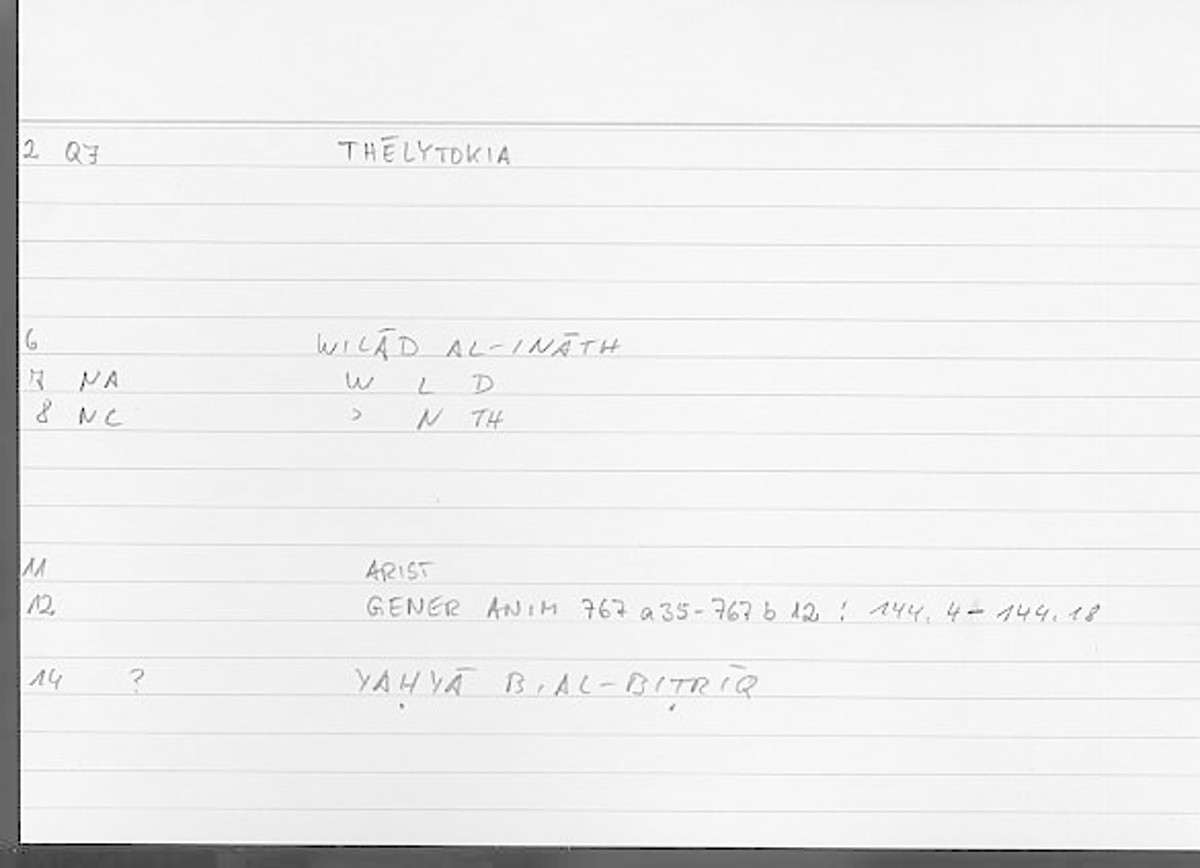 2 Q7 THĒLYTOKIA
6 WILĀD AL-INĀTH
7 NA W L D
8 NC > N TH
11 ARIST
12 GENER ANIM 767 a 35 - 767 b 12 : 144. 4 - 144. 18
14 ? YAḤYĀ B. AL-BIṬRĪQ